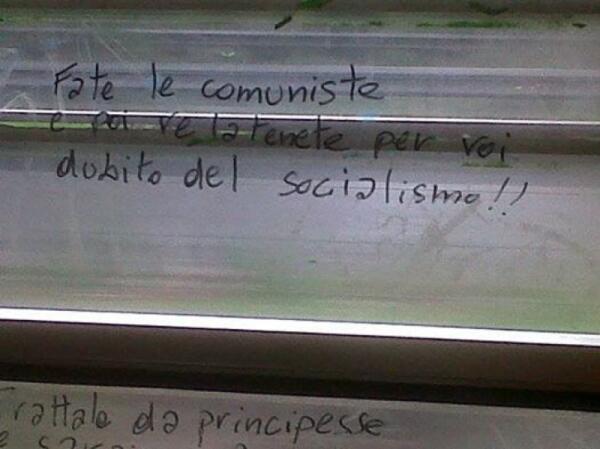 Fate le comuniste
e poi ve la tenete per voi
dubito del socialismo!!
Trattale da principesse
e